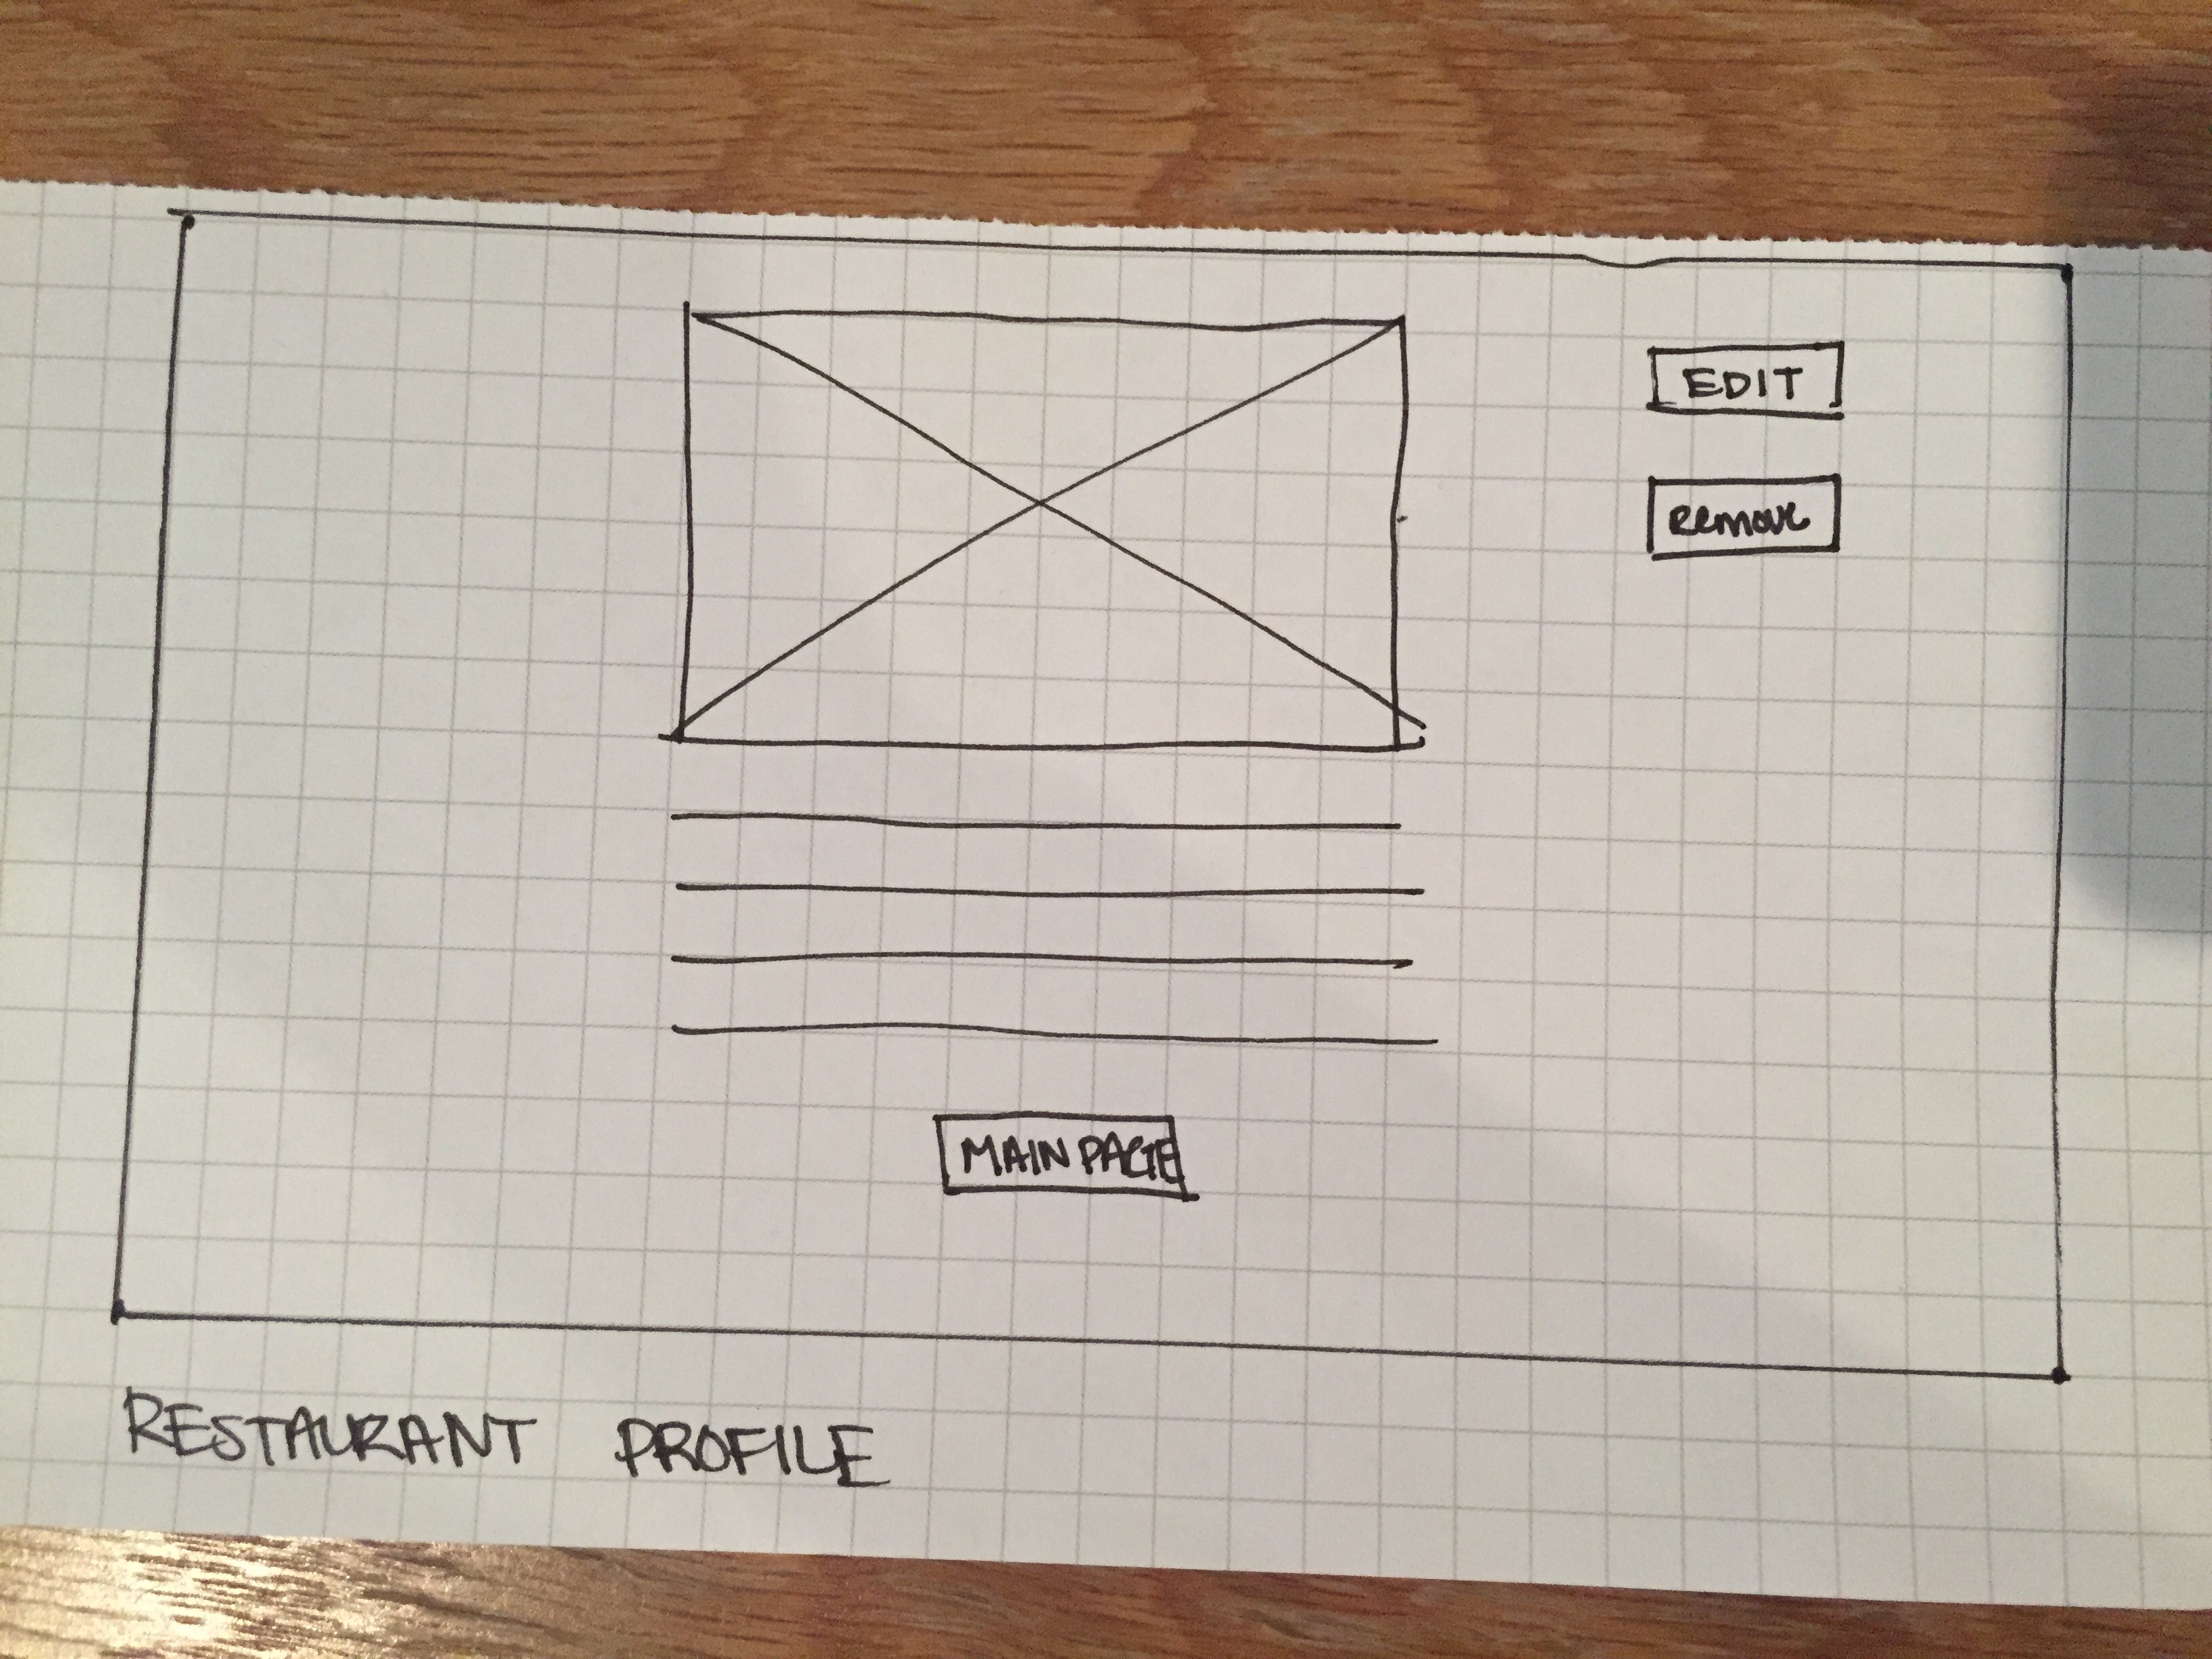 EDIT
Remove
MAIN PAGE
RESTAURANT PROFILE